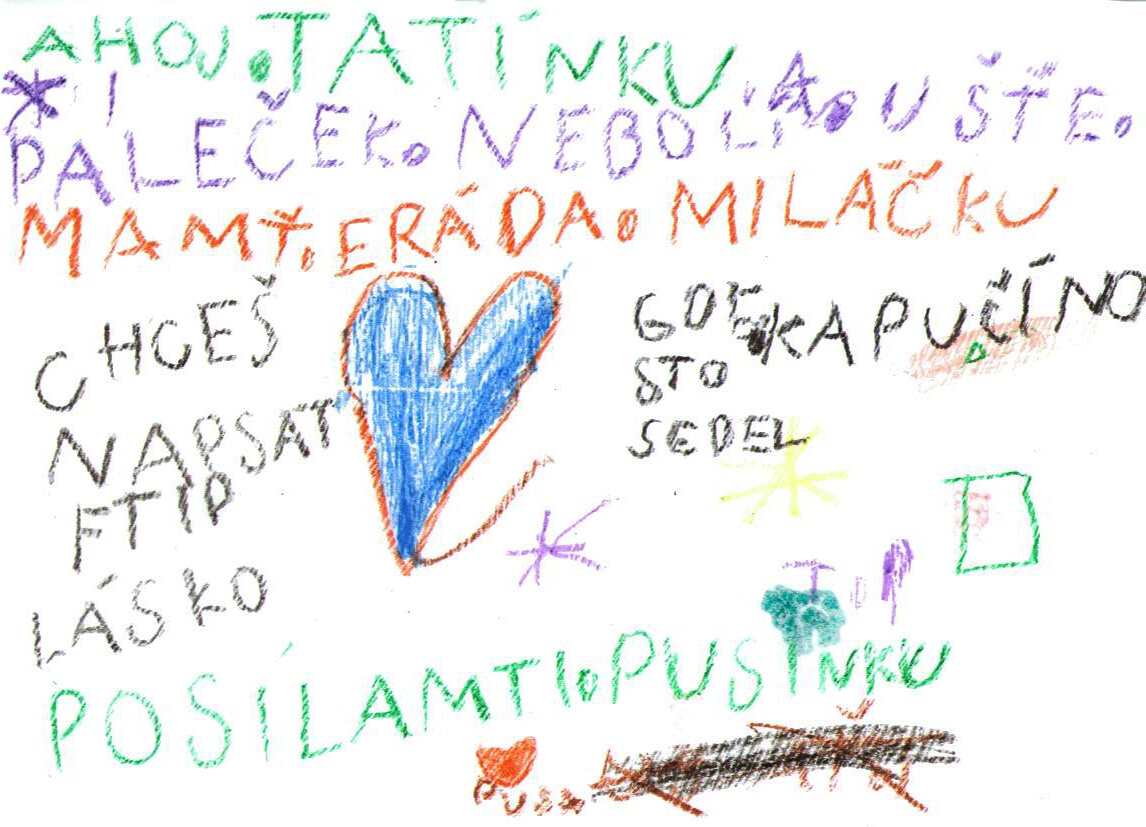 AHOJ.TATÍNKU
PALEČEK.NEBOLÍ A.UŠŤE.
MAMŤ.ERÁDA.MILÁČKU
CHCEŠ
NAPSAT
FTIP
LÁSKO
GDE KAPUČÍNO
STO
SEDEL
POSÍLAMTI.PUSINKU